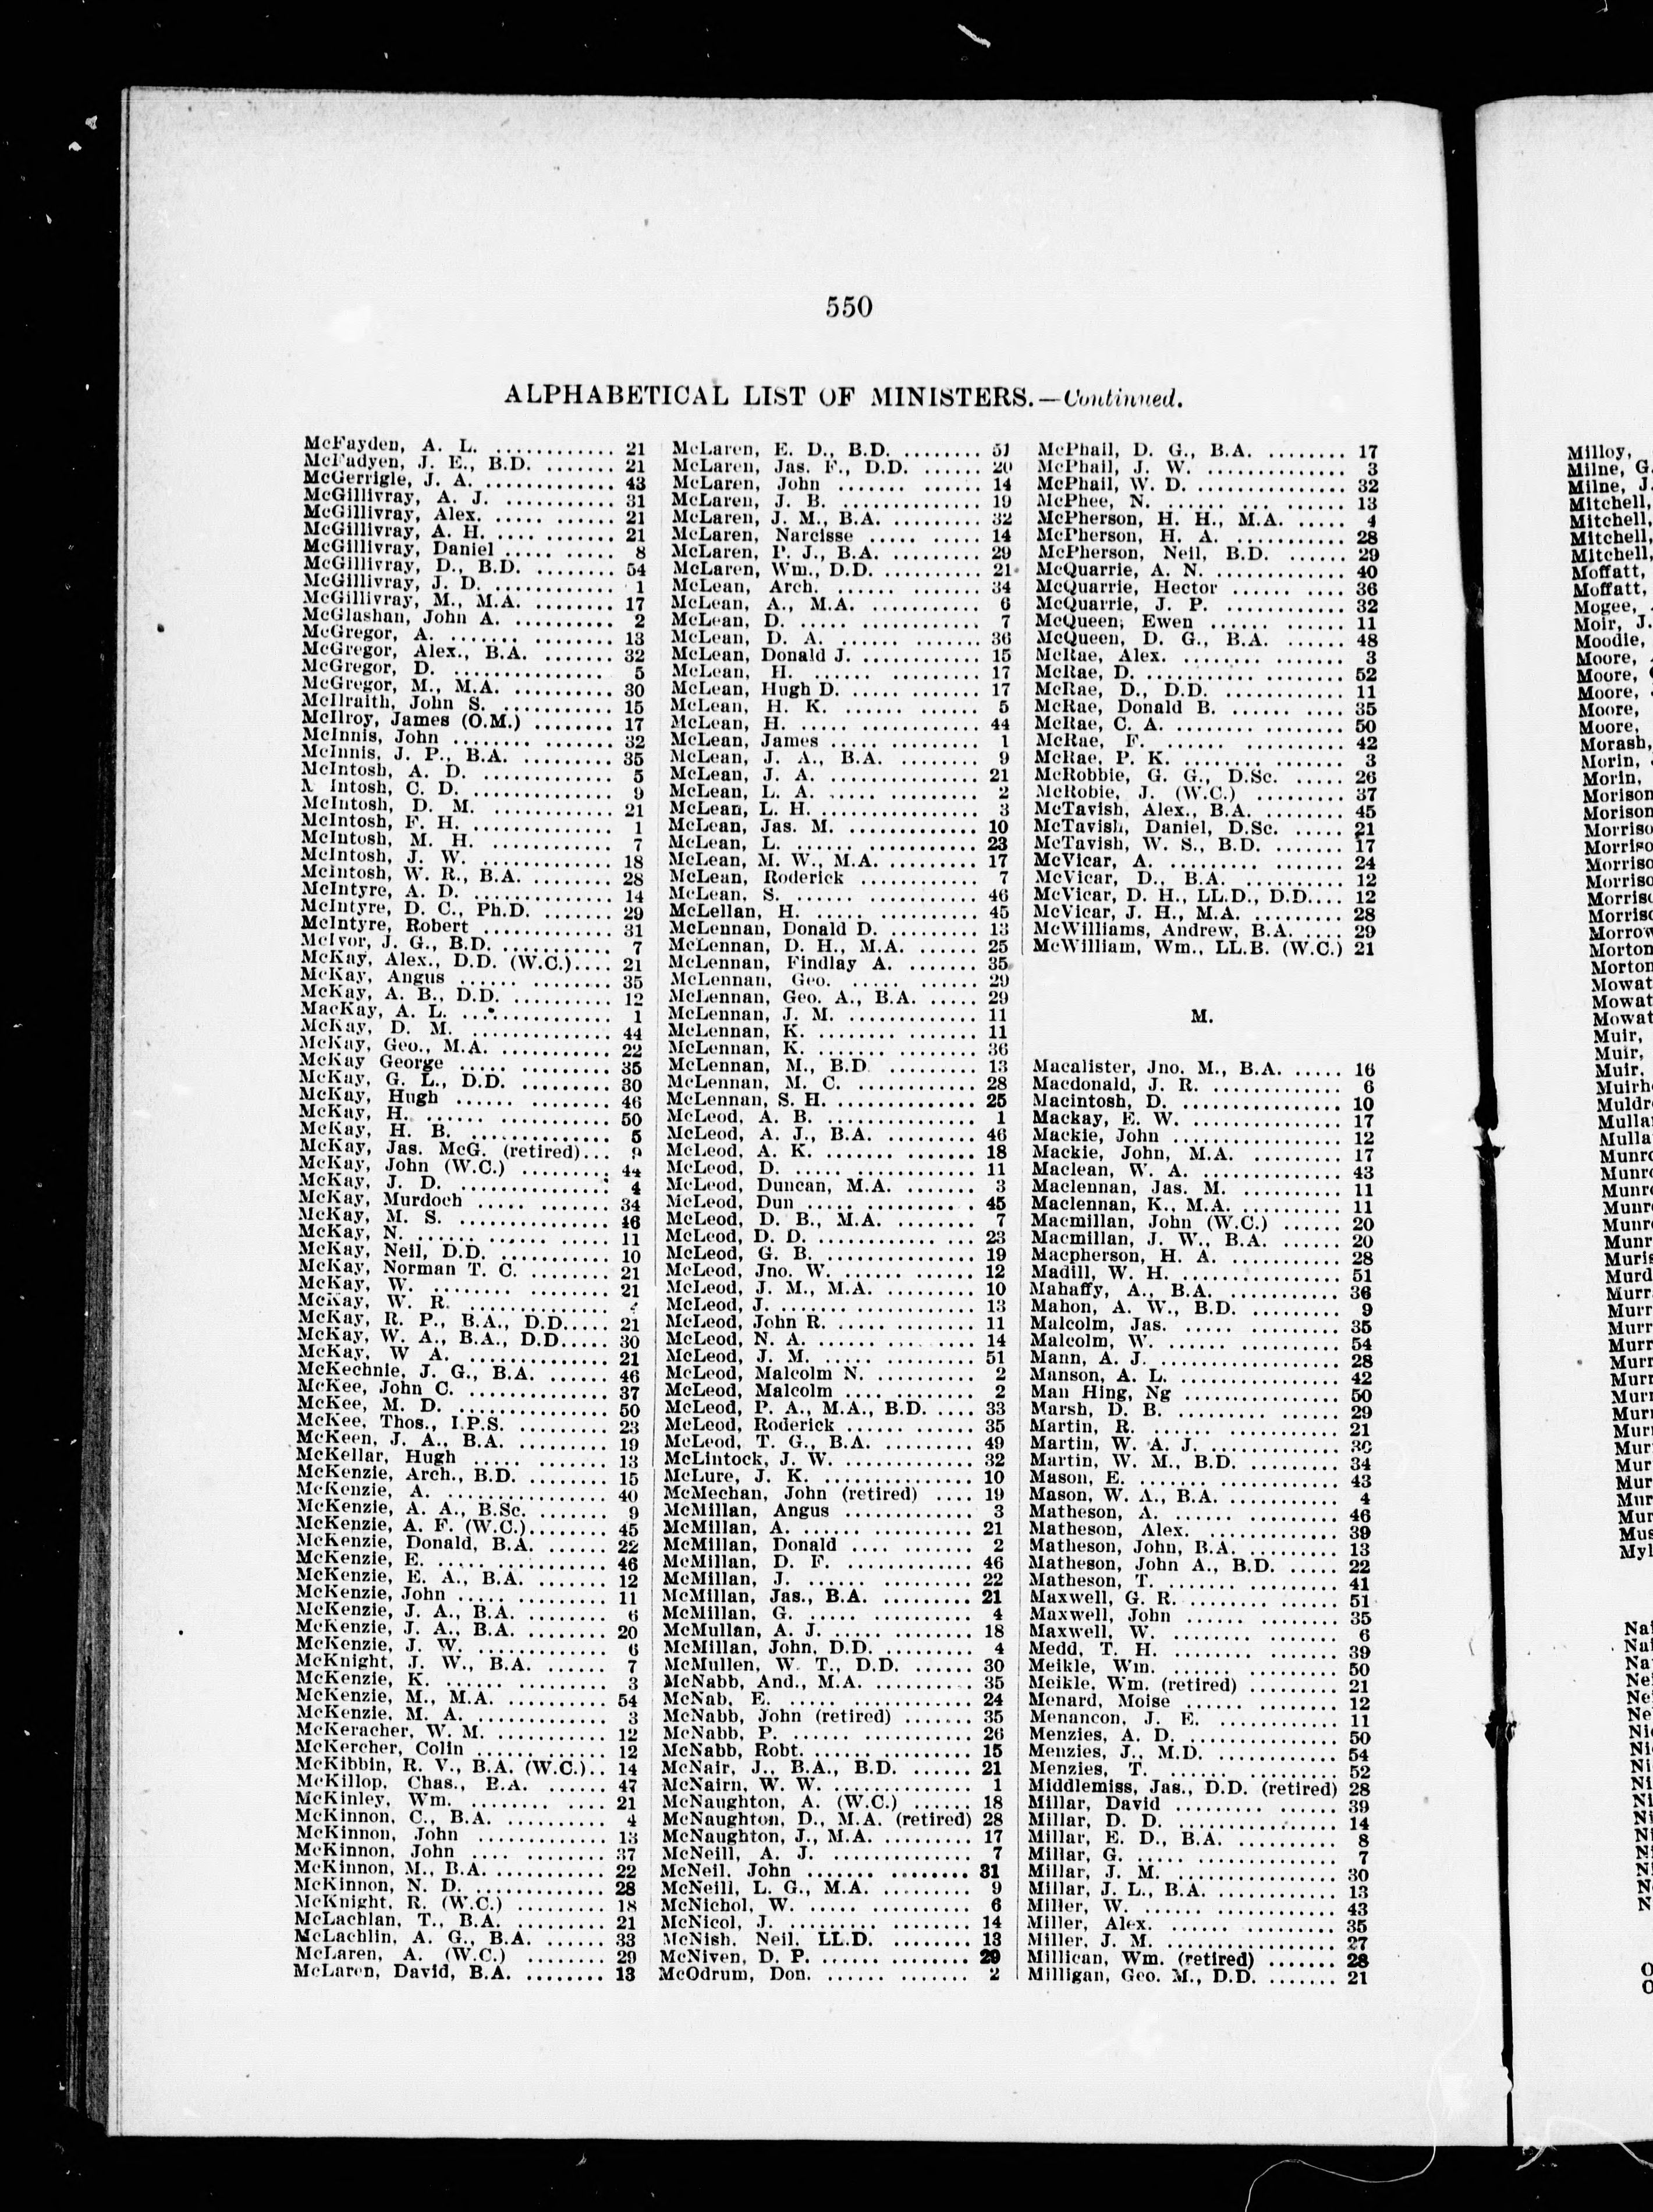 550
ALPHABETICAL LIST OF MINISTERS.—Continued.
McFayden, A. L. ............ 21
McFadyen, J. E., B.D. ....... 21
McGerrigle, J. A. ............. 43
McGillivray, A. J. ........... 31
McGillivray, Alex. ..... ...... 21
McGillivray, A. H. .... ........ 21
McGillivray, Daniel ..... ..... 8
McGillivray, D., B.D. ........ 54
McGillivray, J. D. ............. 1
McGillivray, M., M.A. ........ 17
McGlashan, John A. .......... 2
McGregor, A. ....... ........ 13
McGregor, Alex., B.A. ....... 32
McGregor, D. ................ 5
McGregor, M., M.A. .......... 30
McIlraith, John S. ........... 15
McIlroy, James (O.M.) ........ 17
McInnis, John ........ ....... 32
McInnis, J. P., B.A. ......... 35
McIntosh, A. D. ............. 5
Intosh, C. D. .............. 9
McIntosh, D. M. ............. 21
McIntosh, F. H. .............. 1
McIntosh, M. H. ............ 7
McIntosh, J. W. ............. 18
McIntosh, W. R., B.A. ........ 28
McIntyre, A. D. .............. 14
McIntyre, D. C., Ph.D. ....... 29
McIntyre, Robert ............. 31
McIvor, J. G., B.D. ........... 7
McKay, Alex., D.D. (W.C.).... 21
McKay, Angus ...... ......... 35
McKay, A. B., D.D. .......... 12
MacKay, A. L. ............... 1
McKay, D. M. .............. 44
McKay, Geo., M.A. ........... 22
McKay George ..... ......... 35
McKay, G. L., D.D. ......... 30
McKay, Hugh ...... ......... 46
McKay, H. ...... ............ 50
McKay, H. B. .............. 5
McKay, Jas. McG. (retired)... 9
McKay, John (W.C.) ......... 44
McKay, J. D. ............... 4
McKay, Murdoch ..... ....... 34
McKay, M. S. ............... 46
McKay, N. ...... ...... ...... 11
McKay, Neil, D.D. ........... 10
McKay, Norman T. C. ........ 21
McKay, W. ........ ......... 21
McKay, W. R. ..............
McKay, R. P., B.A., D.D..... 21
McKay, W. A., B.A., D.D..... 30
McKay, W A. .............. 21
McKechnie, J. G., B.A. ...... 46
McKee, John C. .............. 37
McKee, M. D. ............... 50
McKee, Thos., I.P.S. ......... 23
McKeen, J. A., B.A. ......... 19
McKellar, Hugh ..... ....... 13
McKenzie, Arch., B.D. ........ 15
McKenzie, A. ................ 40
McKenzie, A. A., B.Sc. ....... 9
McKenzie, A. F. (W.C.)........ 45
McKenzie, Donald, B.A. ...... 22
McKenzie, E. ...... .......... 46
McKenzie, E. A., B.A. ....... 12
McKenzie, John ..... ......... 11
McKenzie, J. A., B.A. ........ 6
McKenzie, J. A., B.A. ........ 20
McKenzie, J. W. ............. 6
McKnight, J. W., B.A. ...... 7
McKenzie, K. ...... ......... 3
McKenzie, M., M.A. .......... 54
McKenzie, M. A. ............. 3
McKeracher, W. M. .......... 12
McKercher, Colin ............. 12
McKibbin, R. V., B.A. (W.C.).. 14
McKillop, Chas., B.A. ...... 47
McKinley, Wm. ........ .... 21
McKinnon, C., B.A. .......... 4
McKinnon, John ............. 13
McKinnon, John .... ........ 37
McKinnon, M., B.A. ........... 22
McKinnon, N. D. ............. 28
McKnight, R. (W.C.) ......... 18
McLachlan, T., B.A. ......... 21
McLachlin, A. G., B.A. ...... 33
McLaren, A. (W.C.) ........ 29
McLaren, David, B.A. ........ 13
McLaren, E. D., B.D. ........ 51
McLaren, Jas. F., D.D. ...... 20
McLaren, John ....... ...... 14
McLaren, J. B. .............. 19
McLaren, J. M., B.A. ......... 32
McLaren, Narcisse ..... ..... 14
McLaren, P. J., B.A. ......... 29
McLaren, Wm., D.D. .......... 21
McLean, Arch. ...... ....... 34
McLean, A., M.A. ............ 6
McLean, D. ...... ............ 7
McLean, D. A. ....... ...... 36
McLean, Donald J. ............ 15
McLean, H. ...... .......... 17
McLean, Hugh D. ............. 17
McLean, H. K. ...... ...... 5
McLean, H. ..... ............ 44
McLean, James ..... ......... 1
McLean, J. A., B.A. ........ 9
McLean, J. A. ............... 21
McLean, L. A. ..... ......... 2
McLean, L. H. ............... 3
McLean, Jas. M. ............. 10
McLean, L. ...... ............ 23
McLean, M. W., M.A. ......... 17
McLean, Roderick ............ 7
McLean, S. ...... ........... 46
McLellan, H. ...... .......... 45
McLennan, Donald D. ......... 13
McLennan, D. H., M.A. ...... 25
McLennan, Findlay A. ....... 35
McLennan, Geo. ...... ...... 29
McLennan, Geo. A., B.A. ..... 29
McLennan, J. M. ............. 11
McLennan, K. ....... ........ 11
McLennan, K. ....... ........ 36
McLennan, M., B.D. ......... 13
McLennan, M. C. ............ 28
McLennan, S. H. .............. 25
McLeod, A. B. .............. 1
McLeod, A. J., B.A. ......... 46
McLeod, A. K. ....... ....... 18
McLeod, D. ...... ............ 11
McLeod, Duncan, M.A. ....... 3
McLeod, Dun ...... .......... 45
McLeod, D. B., M.A. ......... 7
McLeod, D. D. ............... 23
McLeod, G. B. .............. 19
McLeod, Jno. W. ...... ...... 12
McLeod, J. M., M.A. ......... 10
McLeod, J. .................. 13
McLeod, John R. ..... ....... 11
McLeod, N. A. ............... 14
McLeod, J. M. ...... ........ 51
McLeod, Malcolm N. .......... 2
McLeod, Malcolm .... ........ 2
McLeod, P. A., M.A., B.D. .... 33
McLeod, Roderick ...... ..... 35
McLeod, T. G., B.A. ......... 49
McLintock, J. W. ............. 32
McLure, J. K. ............... 10
McMechan, John (retired) .... 19
McMillan, Angus ............. 3
McMillan, A. ...... .......... 21
McMillan, Donald .... ....... 2
McMillan, D. F. ............. 46
McMillan, J. ...... ......... 22
McMillan, Jas., B.A. ......... 21
McMillan, G. ..... ........... 4
McMullan, A. J. ..... ........ 18
McMillan, John, D.D. ......... 4
McMullen, W. T., D.D. ...... 30
McNabb, And., M.A. ......... 35
McNab, E. ...... ............ 24
McNabb, John (retired) ....... 35
McNabb, P. ...... ........... 26
McNabb, Robt. ...... ........ 15
McNair, J., B.A., B.D. ...... 21
McNairn, W. W. .............. 1
McNaughton, A. (W.C.) ...... 18
McNaughton, D., M.A. (retired) 28
McNaughton, J., M.A. ........ 17
McNeill, A. J. .............. 7
McNeil, John ....... ........ 31
McNeill, L. G., M.A. ......... 9
McNichol, W. ...... .......... 6
McNicol, J. ........ ........ 14
McNish, Neil, LL.D. ........ 13
McNiven, D. P. ...... ........ 29
McOdrum, Don. ...... ....... 2
McPhail, D. G., B.A. ........ 17
McPhail, J. W. .............. 3
McPhail, W. D. ............... 32
McPhee, N. ...... ... ....... 13
McPherson, H. H., M.A. ..... 4
McPherson, H. A. ........... 28
McPherson, Neil, B.D. ...... 29
McQuarrie, A. N. ............. 40
McQuarrie, Hector ...... .... 36
McQuarrie, J. P. ............ 32
McQueen, Ewen ...... ...... 11
McQueen, D. G., B.A. ...... 48
McRae, Alex. ........ ....... 3
McRae, D. ........... ........ 52
McRae, D., D.D. ............ 11
McRae, Donald B. ...... .... 35
McRae, C. A. ........ ........ 50
McRae, F. ...... .......... 42
McRae, P. K. ........ ....... 3
McRobbie, G. G., D.Sc. ..... 26
McRobie, J. (W.C.) ......... 37
McTavish, Alex., B.A. ........ 45
McTavish, Daniel, D.Sc. ..... 21
McTavish, W. S., B.D. ....... 17
McVicar, A. ...... ........... 24
McVicar, D., B.A. .......... 12
McVicar, D. H., LL.D., D.D.... 12
McVicar, J. H., M.A. ......... 28
McWilliams, Andrew, B.A. .... 29
McWilliam, Wm., LL.B. (W.C.) 21
M.
Macalister, Jno. M., B.A. ..... 16
Macdonald, J. R. ............. 6
Macintosh, D. ................ 10
Mackay, E. W. ............... 17
Mackie, John ................ 12
Mackie, John, M.A. ......... 17
Maclean, W. A. ............. 43
Maclennan, Jas. M. ........... 11
Maclennan, K., M.A. .......... 11
Macmillan, John (W.C.) ...... 20
Macmillan, J. W., B.A. ...... 20
Macpherson, H. A. ........... 28
Madill, W. H. ................ 51
Mahaffy, A., B.A. ........... 36
Mahon, A. W., B.D. ......... 9
Malcolm, Jas. ..... .......... 35
Malcolm, W. ...... .......... 54
Mann, A. J. .................. 28
Manson, A. L. ................ 42
Man Hing, Ng ............... 50
Marsh, D. B. ......... ...... 29
Martin, R. ...... ............ 21
Martin, W. A. J. ............. 30
Martin, W. M., B.D. ......... 34
Mason, E. ........ .......... 43
Mason, W. A., B.A. ........... 4
Matheson, A. ...... .......... 46
Matheson, Alex. ............. 39
Matheson, John, B.A. ......... 13
Matheson, John A., B.D. ..... 22
Matheson, T. ....... ......... 41
Maxwell, G. R. ........ ...... 51
Maxwell, John ...... ........ 35
Maxwell, W. ........ ....... 6
Medd, T. H. ........ ....... 39
Meikle, Wm. ...... .......... 50
Meikle, Wm. (retired) ......... 21
Menard, Moise ...... ........ 12
Menancon, J. E. ............ 11
Menzies, A. D. .............. 50
Menzies, J., M.D. ............ 54
Menzies, T. ...... .......... 52
Middlemiss, Jas., D.D. (retired) 28
Millar, David ......... ...... 39
Millar, D. D. ............... 14
Millar, E. D., B.A. .......... 8
Millar, G. ...... ............ 7
Millar, J. M. ............... 30
Millar, J. L., B.A. ............ 13
Miller, W. ...... ............ 43
Miller, Alex. ...... ......... 35
Miller, J. M. ................. 27
Millican, Wm. (retired) ....... 28
Milligan, Geo. M., D.D. ....... 21
Milloy,
Milne, G.
Milne, J.
Mitchell,
Mitchell,
Mitchell,
Mitchell,
Moffatt,
Moffatt,
Mogee,
Moir, J.
Moodie,
Moore,
Moore,
Moore,
Moore,
Moore,
Morash,
Morin,
Morin,
Morison
Morison
Morriso
Morriso
Morriso
Morriso
Morriso
Morriso
Morrow
Morton
Morton
Mowat
Mowat
Mowat
Muir,
Muir,
Muir,
Muirh
Muldr
Mulla
Mulla
Munro
Munro
Munr
Munr
Munr
Munr
Muris
Murd
Murr
Murr
Murr
Murr
Murr
Murr
Murr
Mur
Mur
Mur
Mur
Mur
Mur
Mur
Mus
Myl
Na
Na
Na
Ne
Ne
Ne
Ni
Ni
Ni
Ni
Ni
Ni
Ni
Ni
Ni
N
N
O
O